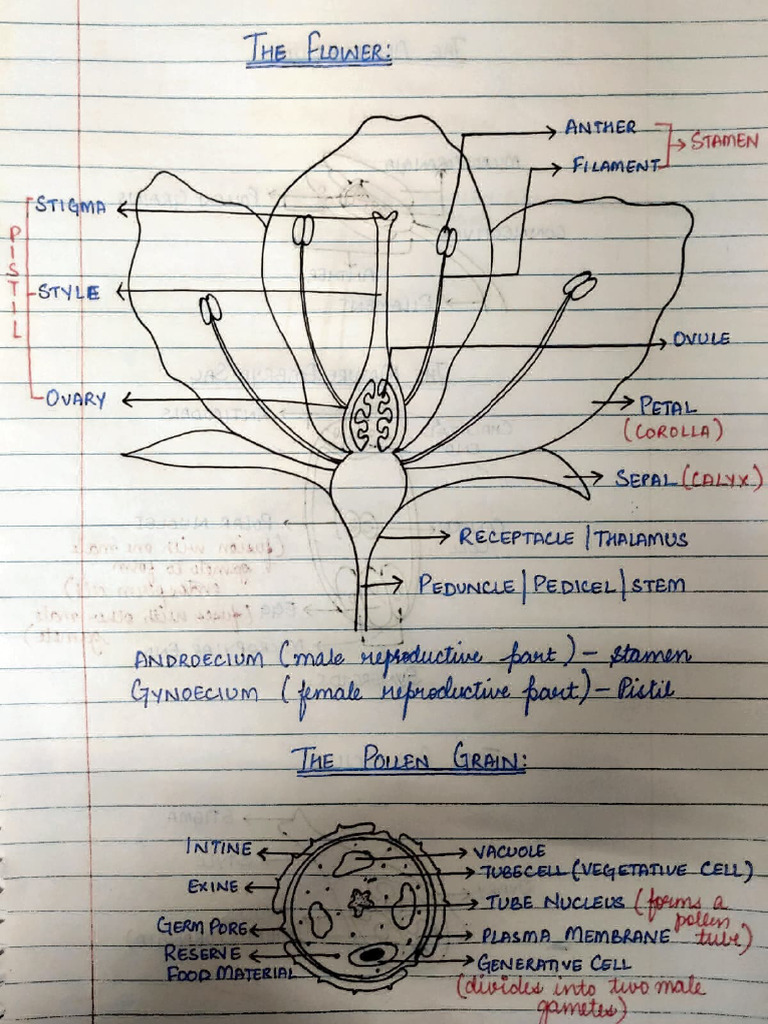 THE FLOWER:
ANTHER
STAMEN
FILAMENT
STIGMA
PISTIL
STYLE
OVULE
OVARY
PETAL
(COROLLA)
SEPAL (CALYX)
RECEPTACLE | THALAMUS
PEDUNCLE | PEDICEL | STEM
ANDROECIUM (male reproductive part) - stamen
GYNOECIUM (female reproductive part) - Pistil
THE POLLEN GRAIN:
INTINE
VACUOLE
TUBE CELL (VEGETATIVE CELL)
EXINE
TUBE NUCLEUS (forms a
pollen
tube)
GERM PORE
PLASMA MEMBRANE
RESERVE
FOOD MATERIAL
GENERATIVE CELL
(divides into two male
gametes)